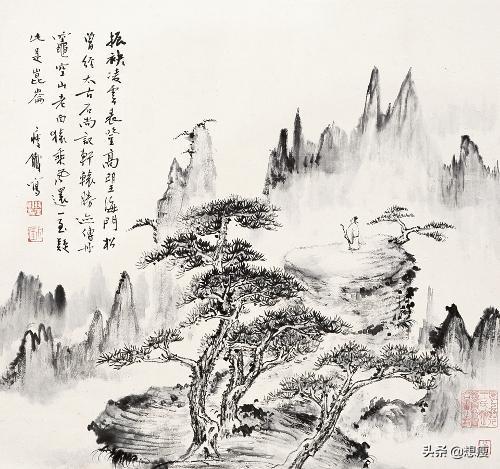 振袂凌雲表登高望海門松
曾經太古石尚記軒轅勝迹傳丹
竈空山老白猿乘風還一至疑
此是崑崙 寫
头条 @想瘦